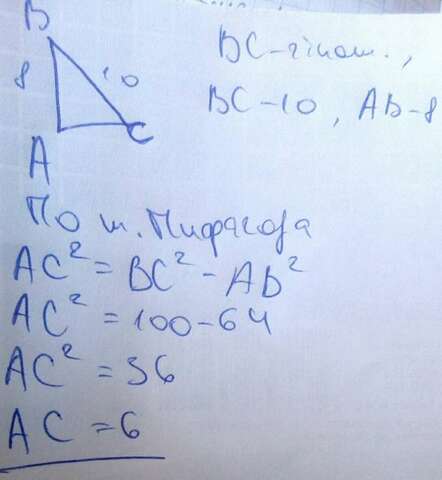 B
BC-гіпот.,
8
10
BC-10, AB-8
C
A
По т. Пифагора
AC² = BC² - AB²
AC² = 100-64
AC² = 36
AC = 6